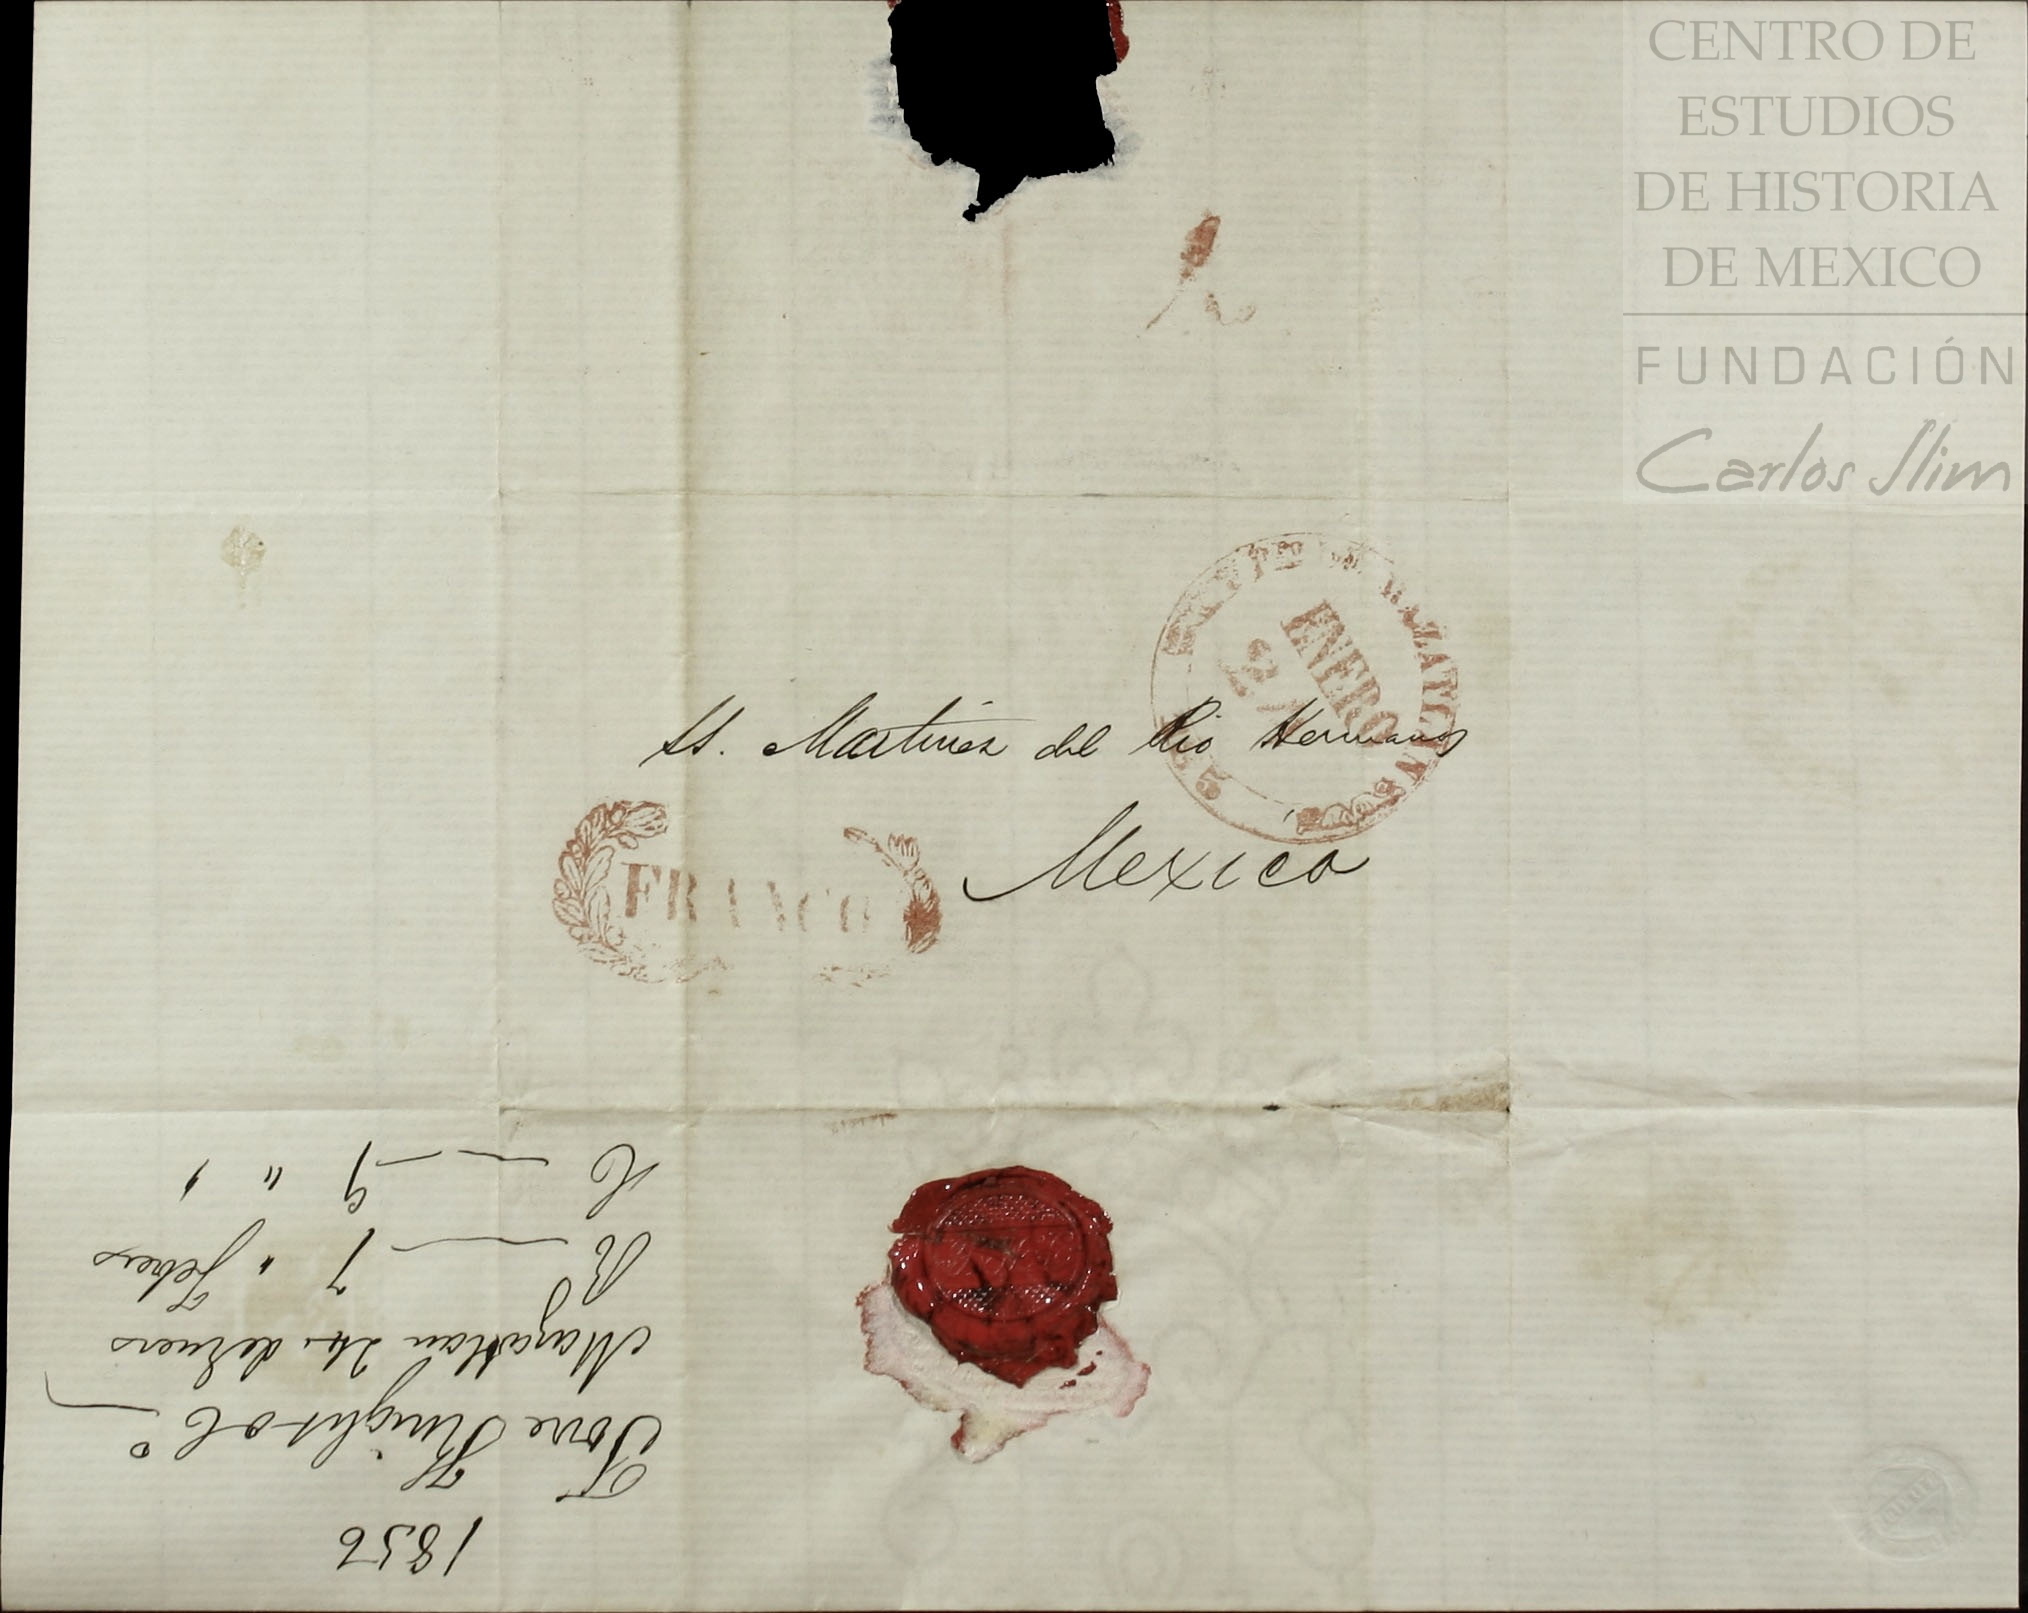 CENTRO DE
ESTUDIOS
DE HISTORIA
DE MEXICO
FUNDACIÓN
Carlos Slim
MAZATLAN
ENERO
24
SS. Martinez del Rio Hermanos
Mexico
FRANCO
1856
Torre Knight & Cº
Mazatlan 24 de Enero
R 7 " Febrero
C 9 " "